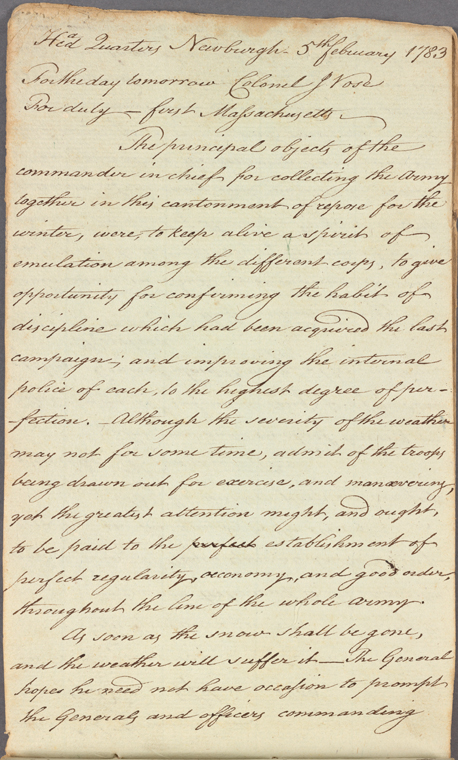 Head Quarters Newburgh. 5th february 1783
For the day tomorrow Colonel J Vose
For duty — first Massachusetts —
The principal objects of the
commander in chief for collecting the Army
together in this cantonment of repose for the
winter, were, to keep alive a spirit of
emulation among the different corps, to give
opportunity for confirming the habit of
discipline which had been acquired the last
campaign; and improving the internal
police of each, to the highest degree of per-
-fection. — Although the severity of the weather
may not for some time, admit of the troops
being drawn out for exercise, and manœvering,
yet the greatest attention might, and ought,
to be paid to the perfect establishment of
perfect regularity, œconomy, and good order,
throughout the line of the whole army.
As soon as the snow shall be gone,
and the weather will suffer it — The General
hopes he need not have occasion to prompt
the Generals and officers commanding